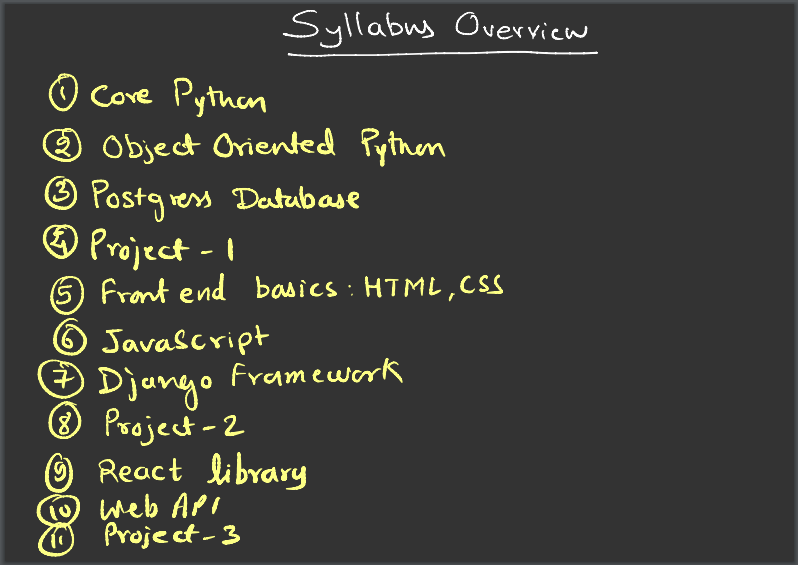 Syllabus Overview
① Core Python
② Object Oriented Python
③ Postgress Database
④ Project - 1
⑤ Front end basics: HTML, CSS
⑥ JavaScript
⑦ Django Framework
⑧ Project - 2
⑨ React library
⑩ Web API
⑪ Project - 3